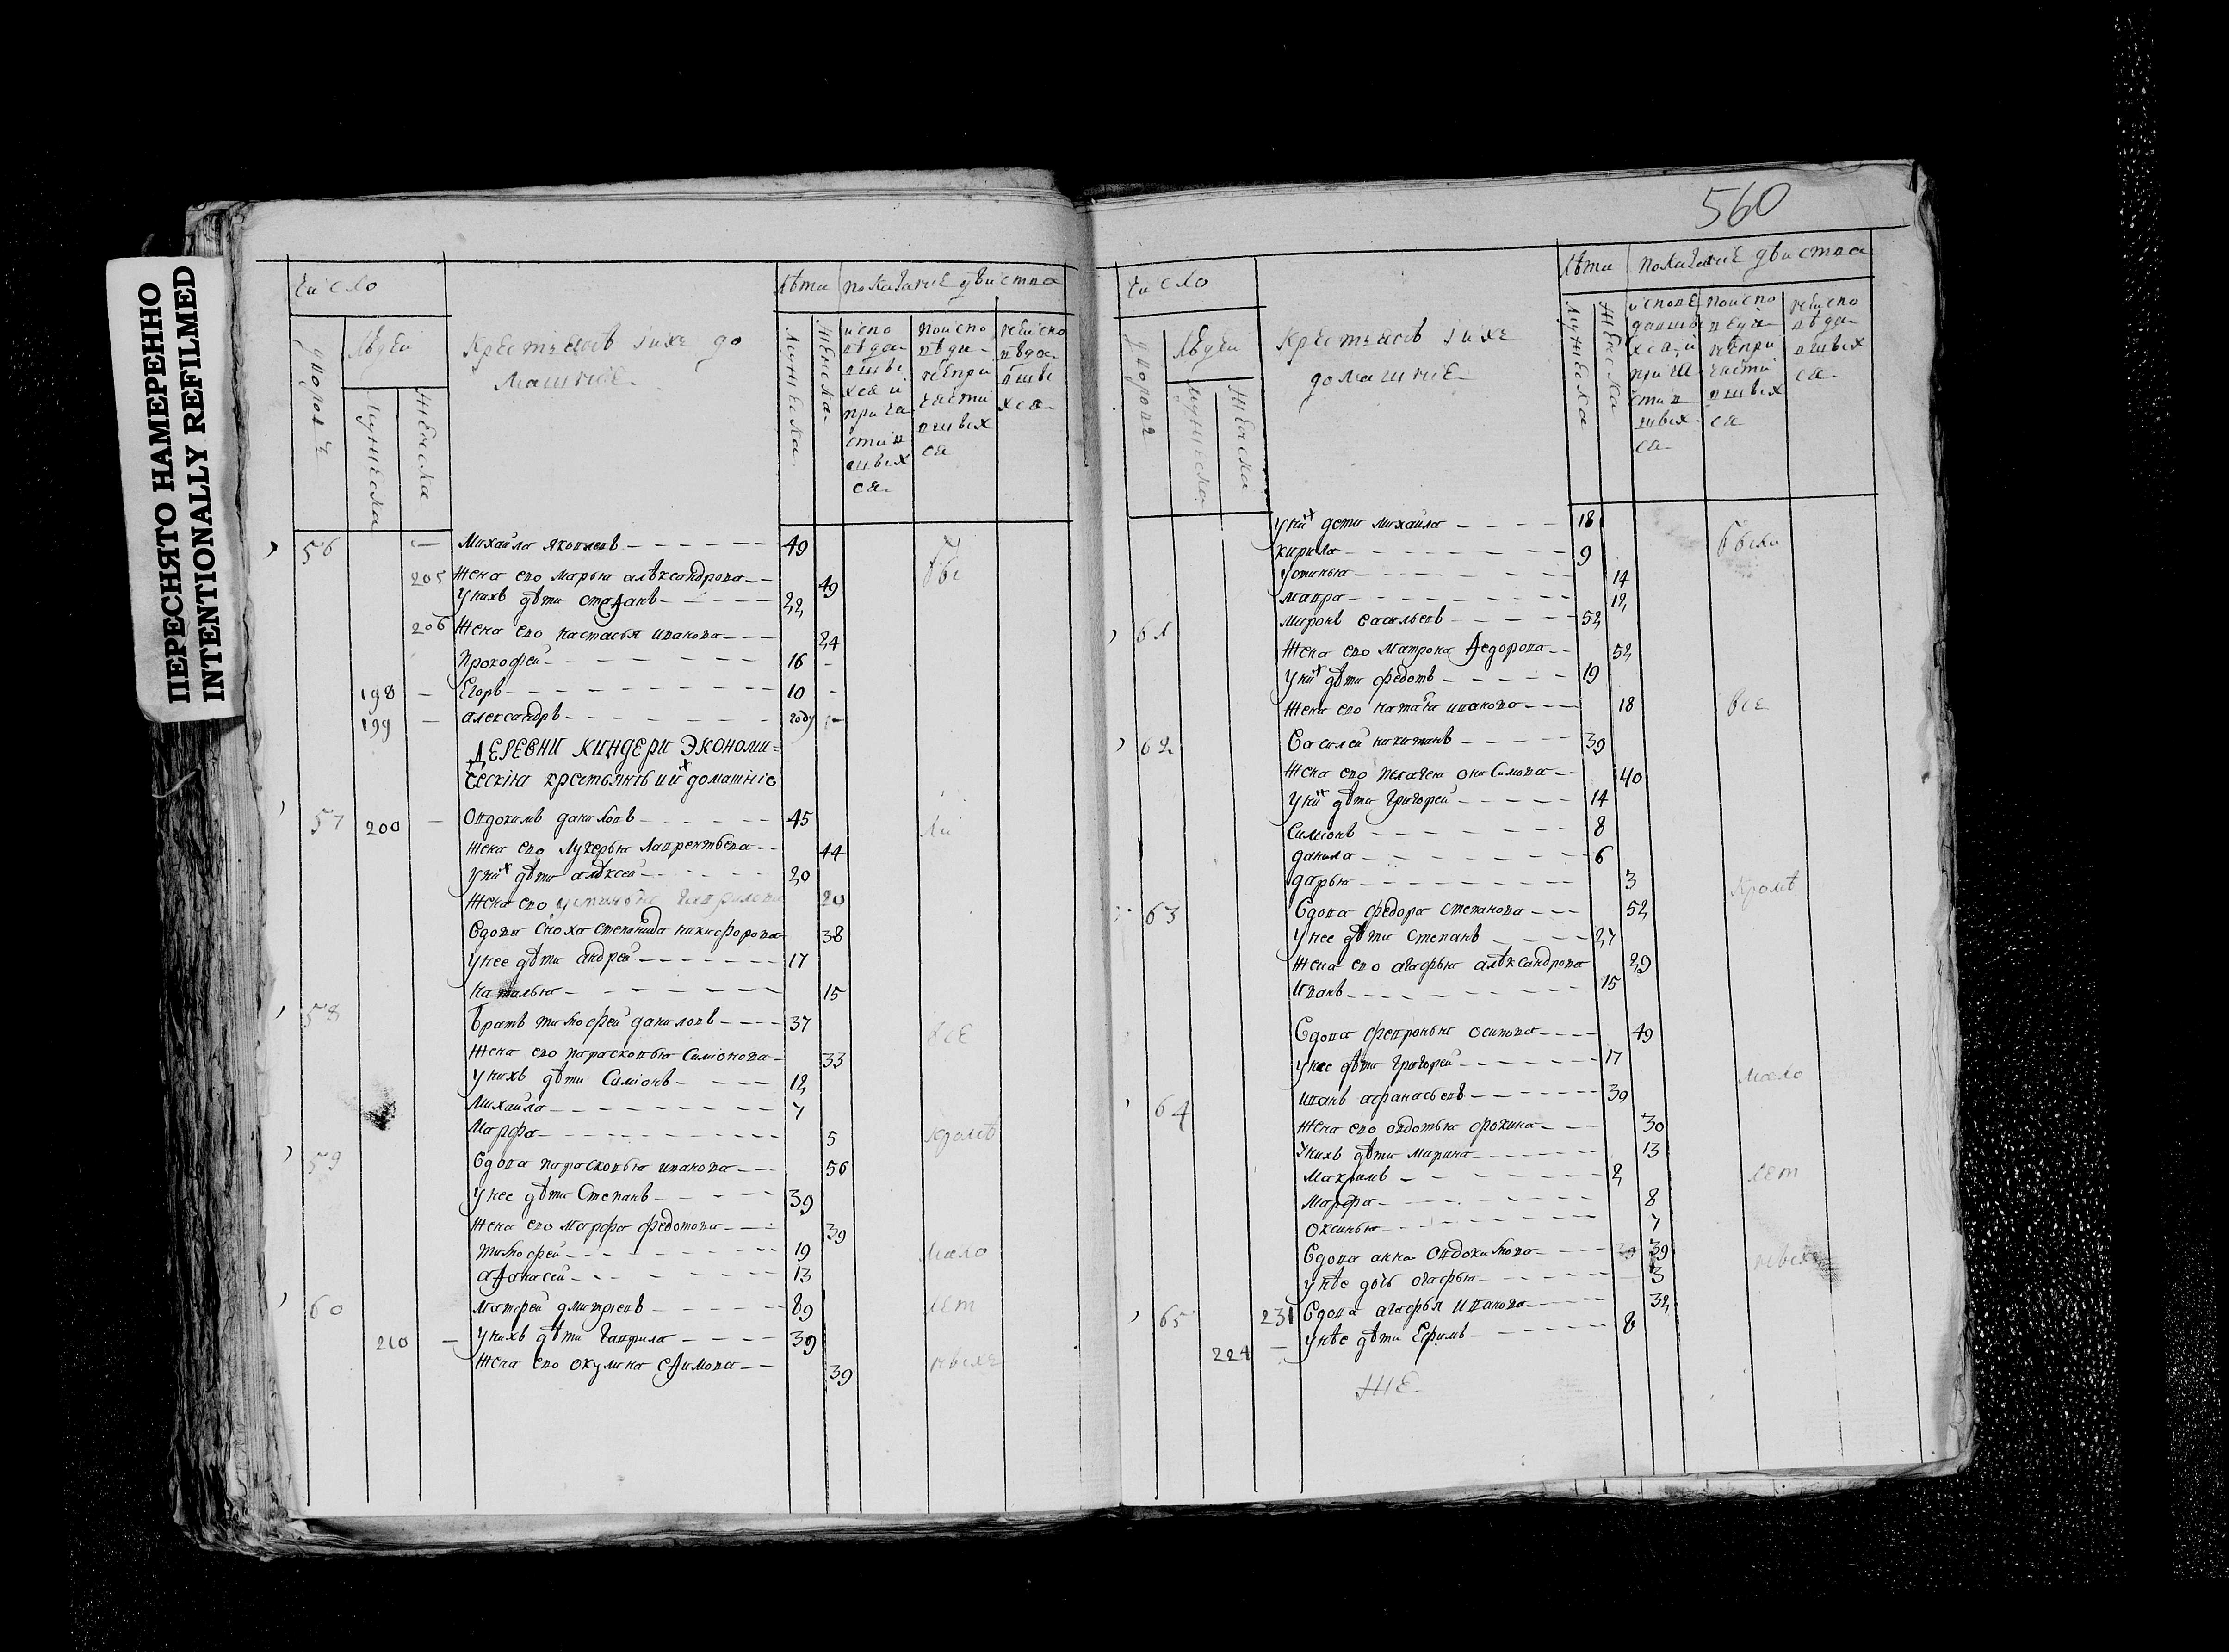 ПЕРЕСНЯТО НАМЕРЕННО
INTENTIONALLY REFILMED
число
дворовъ
людей
мужеска
женска
крестьянъ и ихъ до
машние
лѣта
мужеска
женска
показание действа
испо
вѣда
вшие
хся и
прича
стив
шихх
ся
поиспо
вѣда
непри
части
вшихх
ся
неиспо
вѣда
вшие
хся
56 — Михайла яковлевъ 49
205 Жена ево марья алѣксандрова 49
У нихъ дѣти стеѳанъ 22
206 Жена ево настасья иванова 24
Прокофей 16 -
198 — Егоръ 10 -
199 — александръ году -
бы
ДЕРЕВНИ КИНДЕРИ ЭКОНОМИ=
ческия крестьянъ и их домашние
57 200 — Овдокимъ даниловъ 45 ли
Жена ево лукерья лаврентьева 44
У них дѣти алѣксей 20
Жена ево устинья гаврилова 20
Вдова сноха степанида никифорова 38
У нее дѣти андрей 17
Наталья 15
58 Братъ тимофей даниловъ 37 все
Жена ево парасковья симионова 33
У нихъ дѣти Симионъ 12
Михайла 7
Марфа 5 кромѣ
59 Вдова парасковья иванова 56
У нее дѣти Степанъ 39
Жена ево марфа федотова 39
тимофей 19 мало
аѳанасей 13
60 матфей дмитриевъ 89 лет
210 — У нихъ дѣти гаврила 39
Жена ево окулина еѳимова 39 нвыхъ
560
число
дворовъ
людей
мужеска
женска
крестьянъ и ихъ
домашние
лѣта
мужеска
женска
показание действа
исповѣ
давши
хся и
прича
стив
шихх
ся
поиспо
веда
непри
части
вшихх
ся
неиспо
вѣда
вшихх
ся
У них дети михайла 18
кирила 9 были
Устинья 14
мавра 12
61 миронъ васильевъ 52
Жена ево матрона ѳедорова 52
У них дѣти федотъ 19
Жена ево наталья иванова 18 все
62 Василей никитинъ 39
Жена ево пелагея онисимова 40
У них дѣти григорей 14
Симионъ 8
данила 6
дарья 3 кромѣ
63 Вдова федора степанова 52
У нее дѣти степанъ 27
Жена ево агафья алѣксандрова 29
Иванъ 15
Вдова февронья осипова 49
У нее дѣти григорей 17 мало
64 иванъ афанасьевъ 30
Жена ево овдотья фокина 30
У нихъ дѣти марина 13
Максимъ 2 лет
Марфа 8
Оксинья 7
Вдова анна овдокимова 39 39 нвыхъ
У нѣе дочь агафья 3
65 231 Вдова агафья иванова 32
224 — У нѣе дѣти Ефимъ 8
же